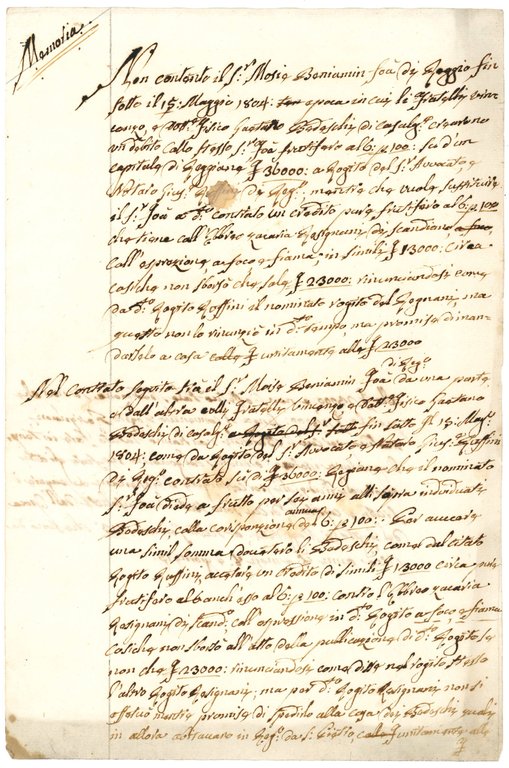 Memoria
Non contento il S.r Moisè Beniamin Foà di Reggio fin
sotto il 15 Maggio 1804: epoca in cui li Fratelli Vin-
cenzo, e Dott. Fisico Gaetano Bedeschi di Casalg.e crearono
un debito collo stesso S.r Foà fruttifero al 6: p 100: sù d'un
capitale di Reggiane £ 36000: a Rogito del S.r Avvocato, e
Notaro Gius.e di Reg.o, mentre che vuole
il S.r Foà a D.o contratto un credito pure fruttifero al 6: p 100
che tiene coll'Ebreo Zaccaria Resignani di Scandiano
coll'espressione, a foco e fiama, in simili £ 13000: circa
cosiche non sborsò che sole £ 23000: rinunciandosi come
da d.o Rogito Raffini il nominato rogito del Resignani, ma
questo non lo rinunziò in d.o tempo, ma promise di man-
darlelo a casa colle £ unitamente alle £ 23000
di Reg.o
Nel Contrato seguito trà il S.r Moisè Beniamin Foà da una parte
e dall'altra colli Fratelli Vincenzo e Dott.r Fisico Gaetano
Bedeschi di Casalg.e fin sotto il 15: Mag.o
1804: come da Rogito del S.r Avvocato e Notaro Gius.e Raffini
di Reg.o contratto sù di £ 36000: Reggiane che il nominato
S.r Foà diede a frutto per sei anni alli sopra individuati
Bedeschi, colla corisponzione annua del 6: p 100: Per
una simil somma dovetero li Bedeschi, come dal citato
Rogito Raffini, acetare un Credito di simili £ 13000 circa
fruttifero al 6: p 100: contro l'Ebreo Zacaria
Resignani di Scand.o coll'espressione in d.o Rogito a foco, e fiama
Cosiche non sborsò all'atto della publicazione di d.o Rogito se
non che £ 23000: rinunciandosi come dissi nel rogito stesso
l'altro Rogito Resignani, ma per d.o Rogito Resignani non si
effetuò mentre promise di spedirlo alla casa dei Bedeschi quali
in allora in Reg.o da S.r unitamente alle
£